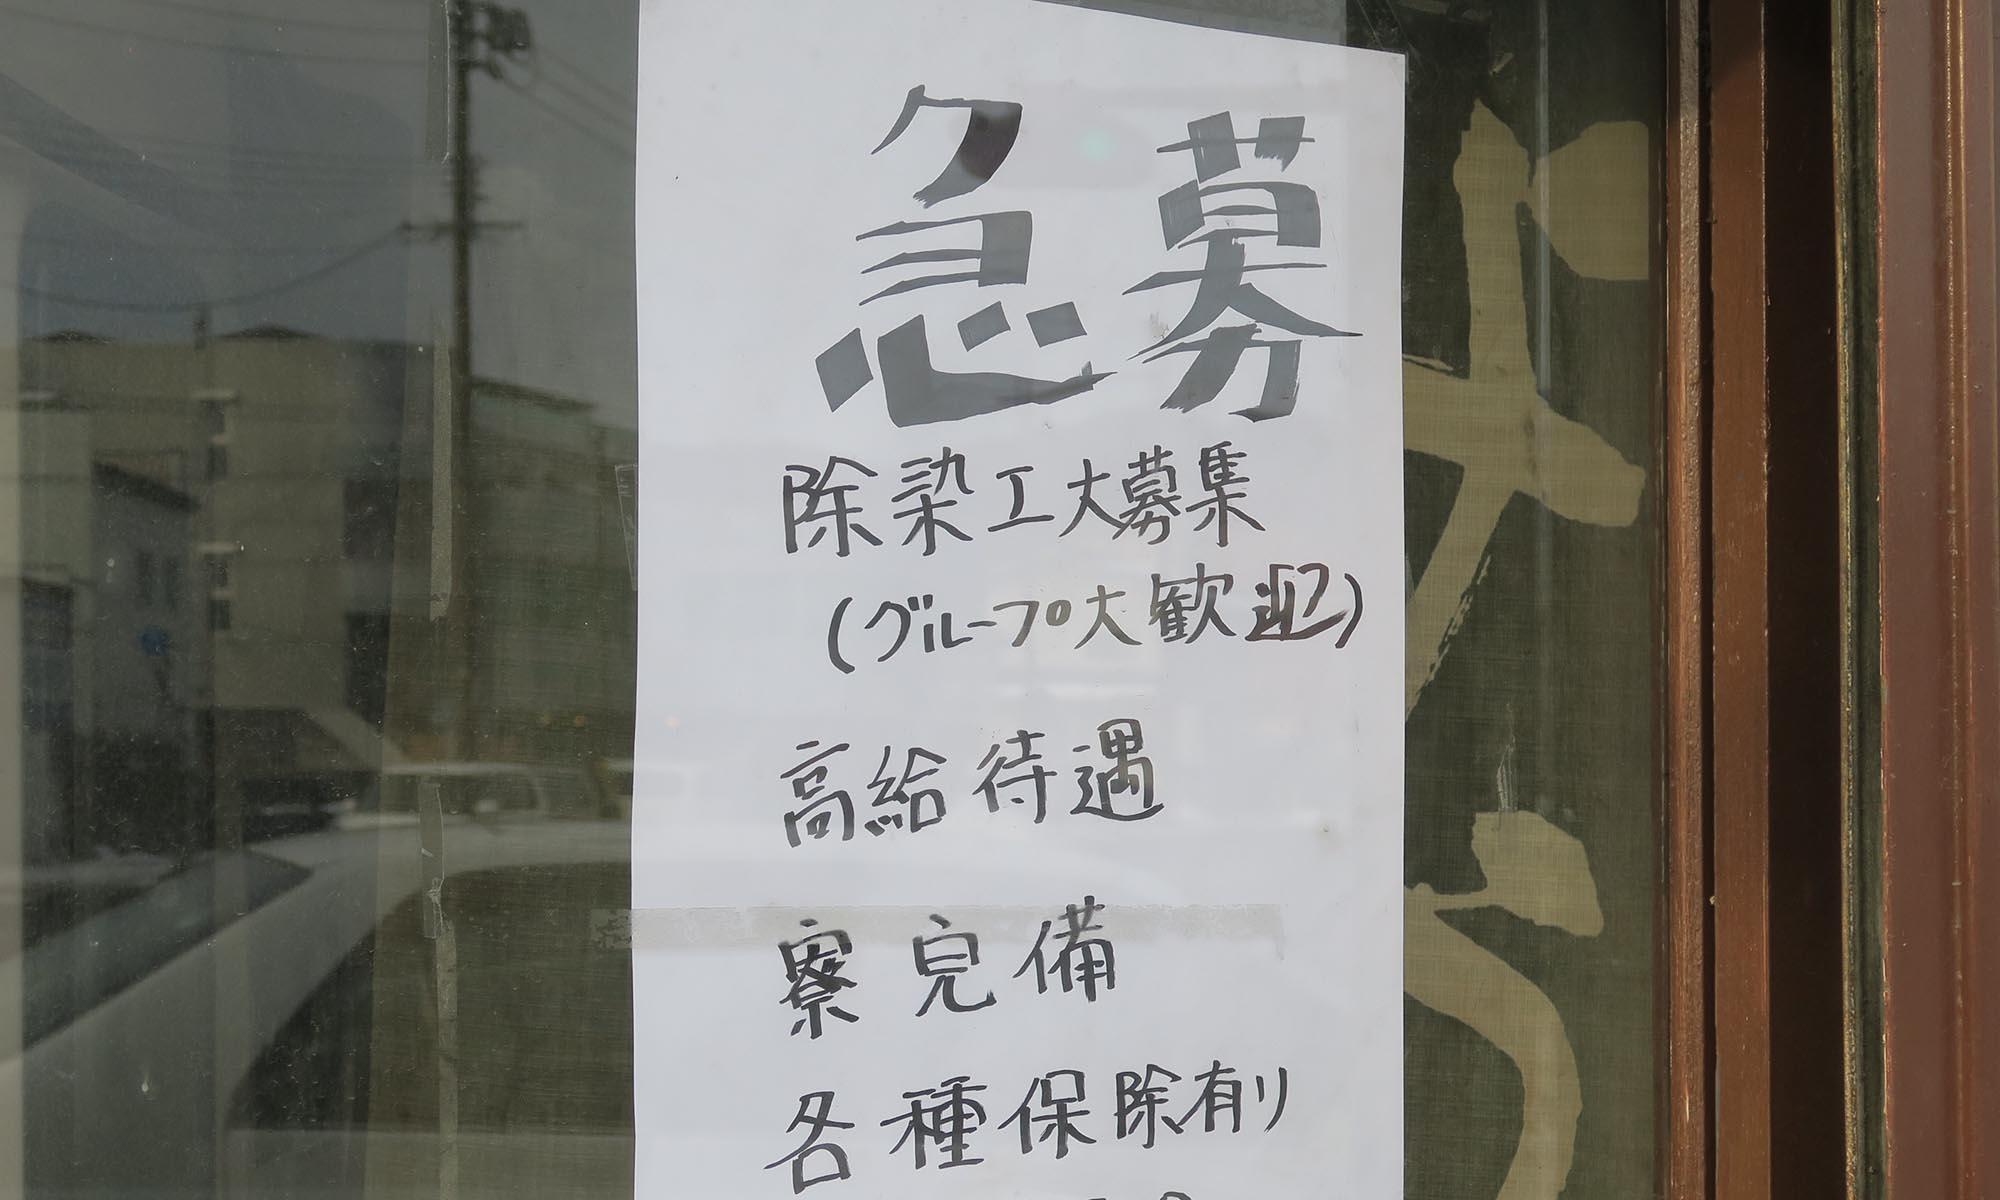 急募
除染工大募集
(グループ大歓迎)
高給待遇
寮完備
各種保除有り